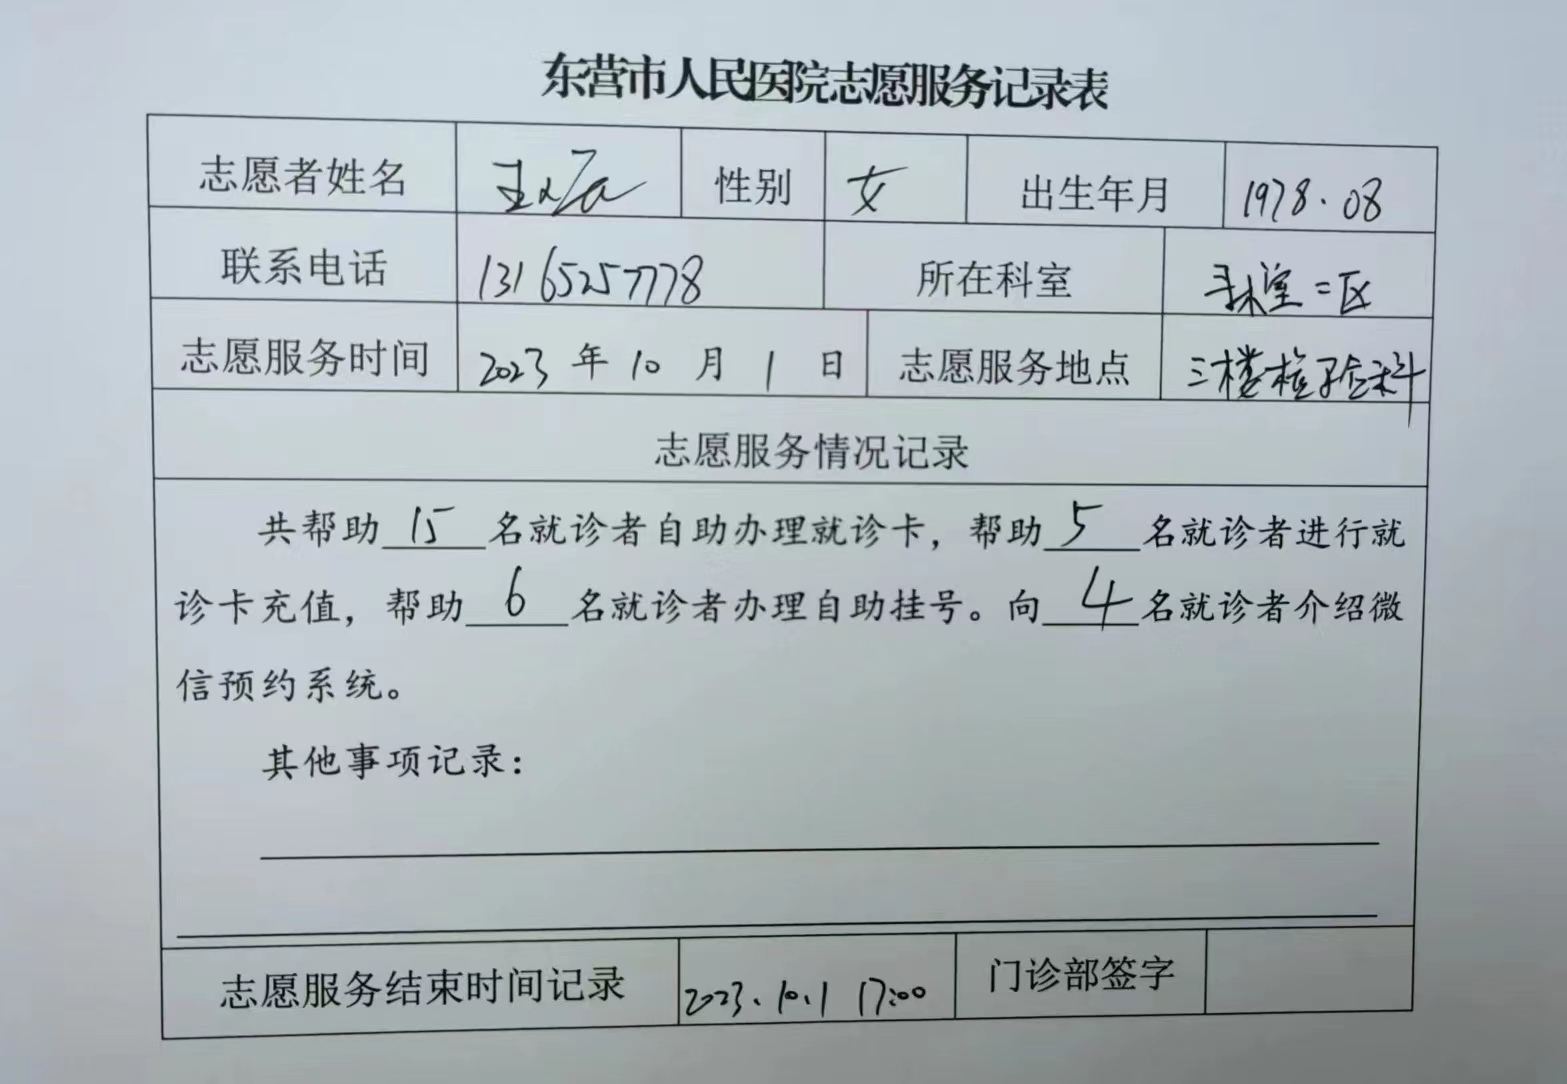 东营市人民医院志愿服务记录表
志愿者姓名 王 性别 女 出生年月 1978.08
联系电话 13165257778 所在科室 手术室二区
志愿服务时间 2023 年 10 月 1 日 志愿服务地点 三楼检验科
志愿服务情况记录
共帮助 15 名就诊者自助办理就诊卡，帮助 5 名就诊者进行就
诊卡充值，帮助 6 名就诊者办理自助挂号。向 4 名就诊者介绍微
信预约系统。
其他事项记录：
志愿服务结束时间记录 2023.10.1 17:00 门诊部签字